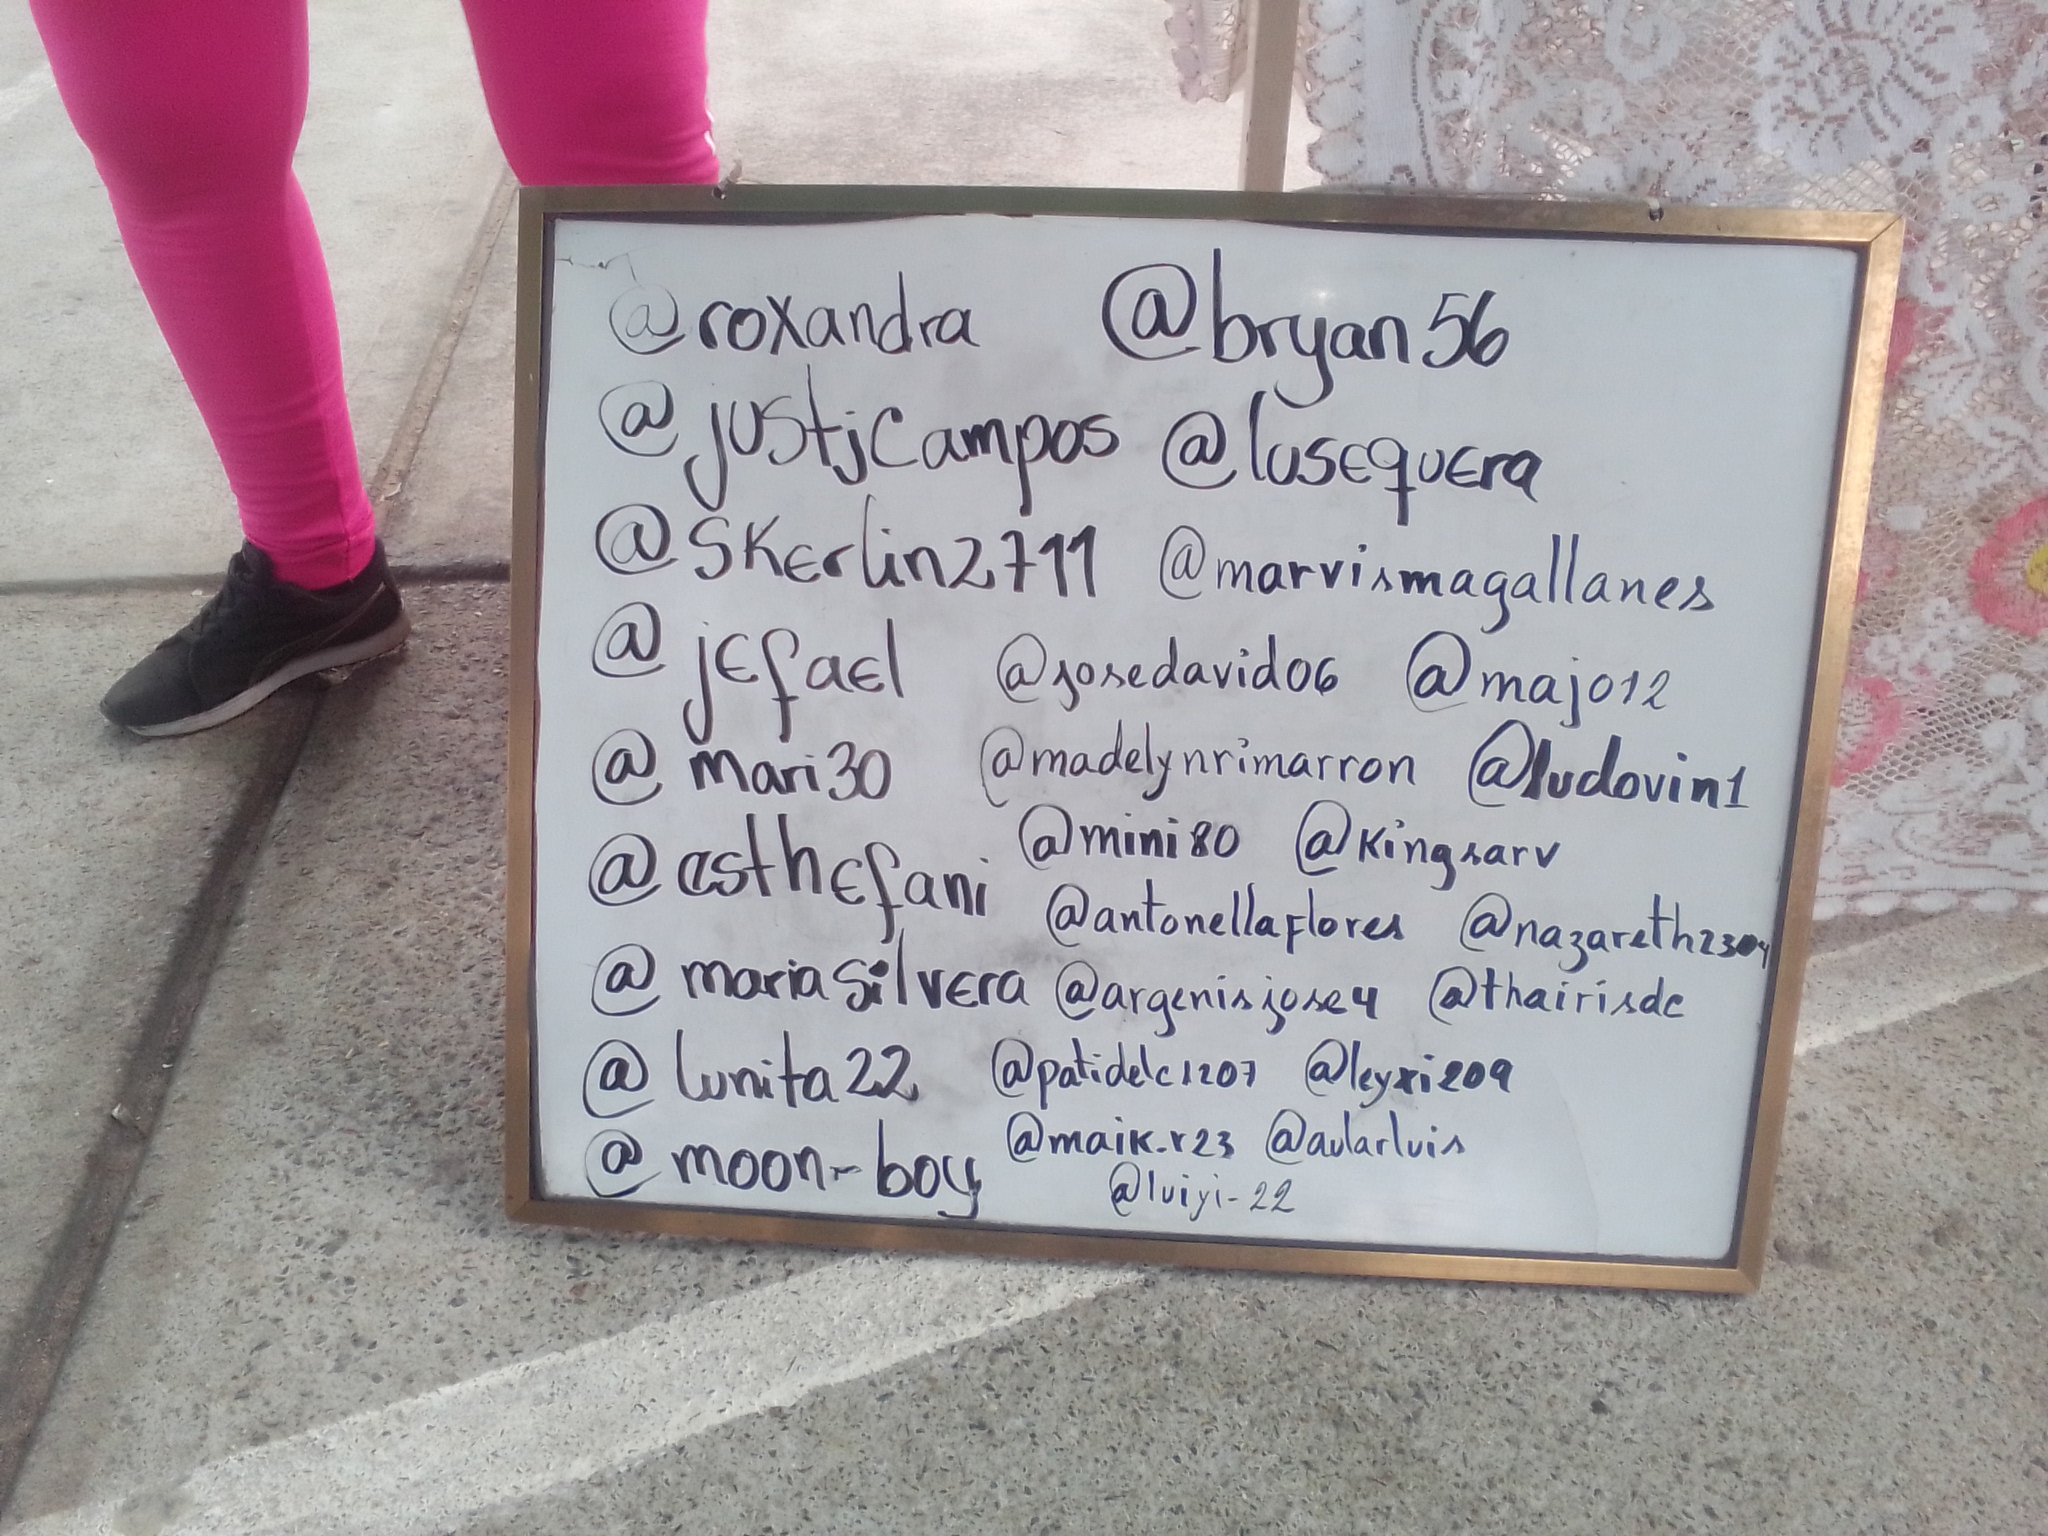 @roxandra @bryan56
@justjcampos @lusequera
@skerlin2711 @marvismagallanes
@jefael @josedavid06 @majo12
@mari30 @madelynrimarron @ludovin1
@esthefani @mini80 @kingsarv
@antonellaflores @nazareth2304
@mariasilvera @argenisjose4 @thairisdc
@lunita22 @patidelc1207 @leyxi209
@moon-boy @maik-r23 @aularluis
@luiyi-22